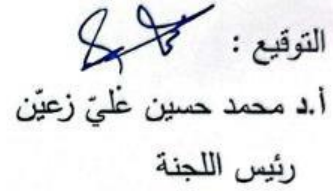 التوقيع :
أ.د محمد حسين عليّ زعيّن
رئيس اللجنة